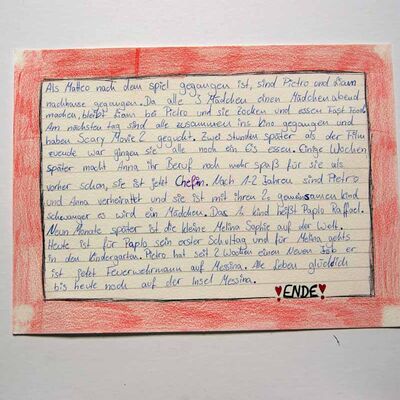 Als Matteo nach dem spiel gegangen ist, sind Pietro und Liam
nachhause gegangen. Da alle 3 Mädchen einen Mädchenabend
machen, bleibt Liam bei Pietro und sie zocken und essen Fast Food.
Am nächsten tag sind alle zusammen ins Kino gegangen und
haben Scary Movie 2 geguckt. Zwei Stunden später als der Film
zuende war gingen sie alle noch ein Eis essen. Einige Wochen
später macht Anna ihr Beruf noch mehr spaß für sie als
vorher schon, sie ist jetzt Chefin. Nach 1-2 Jahren sind Pietro
und Anna verheiratet und sie ist mit ihren 2. gemeinsamen kind
schwanger es wird ein Mädchen. Das 1. kind heißt Paplo Raffael.
Neun Monate später ist die kleine Melina Sophie auf der Welt.
Heute ist für Paplo sein erster Schultag und für Melina gehts
in den Kindergarten. Pietro hat seit 2 Wochen einen Neuen Job er
ist jetzt Feuerwehrmann auf Messina. Alle leben glücklich
bis heute noch auf der Insel Messina.
!ENDE!